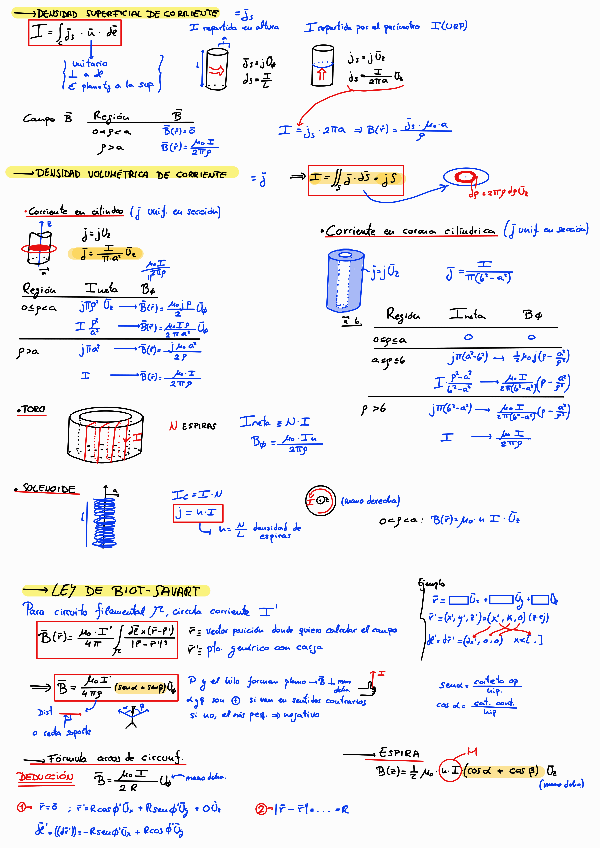 → DENSIDAD SUPERFICIAL DE CORRIENTE = j̄s
I = ∫c j̄s · ū · dℓ
unitario
⊥ a dℓ
∈ plano tg a la sup
I repartida en altura
L
j̄s = j Ūφ
js = I/L
I repartida por el perímetro
j̄s = j Ūz
j̄s = I/2πa Ūz
Campo B̄
Región B̄
0<ρ<a B̄(r̄) = 0̄
ρ>a B̄(r̄) = μ0 I/2πρ
I = js · 2πa ⇒ B(r̄) = js · μ0 · a/ρ
→ DENSIDAD VOLUMÉTRICA DE CORRIENTE = j̄
⇒ I = ∬s j̄ · ds̄ = j S
• Corriente en cilindro (j̄ unif. en sección)
j̄ = j Ūz
j̄ = I/π·a² Ūz
Región Ineta Bφ
0≤ρ<a jπρ² Ūz → B̄(r̄) = μ0 j ρ/2 Ūφ
I ρ²/a² → B̄(r̄) = μ0 I ρ/2πa² Ūφ
ρ>a jπa² → B̄(r̄) = j μ0 a²/2ρ
I → B̄(r̄) = μ0 · I/2πρ
• Corriente en corona cilíndrica (j̄ unif en sección)
j̄ = j Ūz
j̄ = I/π(b²-a²)
a b
Región Ineta Bφ
0≤ρ≤a 0 0
a≤ρ≤b jπ(ρ²-a²) → ½ μ0 j (ρ - a²/ρ)
I · ρ²-a²/b²-a² → μ0 I/2π(b²-a²) (ρ - a²/ρ)
I → μ0 I/2πρ
• TORO
I
N ESPIRAS
Ineta = N · I
Bφ = μ0 · I N/2πρ
• SOLENOIDE
a
L
Ic = I · N
j = n · I
n = N/L densidad de espiras
(mano derecha)
0<ρ<a : B̄(r̄) = μ0 · n I · Ūz
→ LEY DE BIOT-SAVART
Para circuito filamental Γ, circula corriente I'
B̄(r̄) = μ0 · I'/4π ∫Γ dℓ̄' x (r̄-r̄')/|r̄-r̄'|³
r̄ ≡ vector posición donde quiero calcular el campo
r̄' ≡ pto. genérico con carga
Ejemplo
r̄ = □ Ūx + □ Ūy + □ Ūz
⇒ B̄ = μ0 I'/4πρ (senα + senβ) Ūφ
P y el hilo forman plano → B̄ ⊥ mano dcha
α y β son ⊕ si van en sentidos contrarios
si no, el más peq. ⇒ negativo
Dist
o recta soporte
senα = cateto op/hip.
cosα = cat. cont./hip
→ Fórmula arcos de circunf.
DEDUCCIÓN
B̄ = μ0 · I/2R Ūφ mano dcha.
→ ESPIRA
M
B(z) = ½ μ0 · n · I (cosα + cosβ) Ūz
(mano dcha)
①→ r̄ = 0̄ ; r̄' = R cosφ' Ūx + R senφ' Ūy + 0 Ūz
②→ |r̄ - r̄'| .... = R
dℓ̄' = (dr̄') = -R senφ' Ūx + R cosφ' Ūy